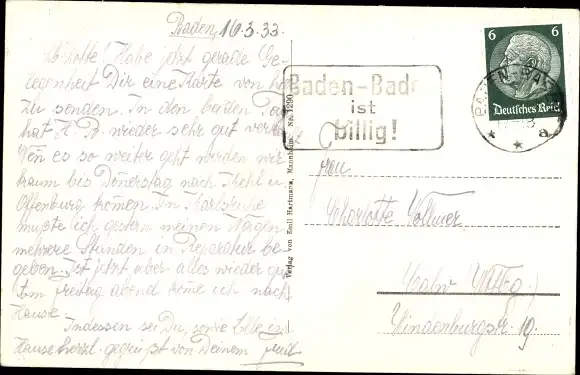 Baden, 16.3.33.
Habe jetzt gerade Ge-
legenheit Dir eine Karte von hier
zu senden. In den beiden
hat H. B. wieder sehr gut
Wen es so weiter geht werden wir
kaum bis Donerstag nach Kehl u.
Offenburg komen. In Karlsruhe
mußte ich gestern meinen Wagen
mehrere Stunden in Reparatur be-
geben. Ist jetzt aber alles wieder gut
Freitag abend kome ich nach
Hause.
Indessen sei Du, sowie Elle im
Hause herzl. gegrüßt von Deinem
Verlag von Emil Hartmann, Mannheim
Baden-Bade
ist
billig!
6 6
Deutsches Reich
BADEN-BADEN
* a
*
Frau
Charlotte Vollmer
Calw Wttbg.
Hindenburgstr. 19.